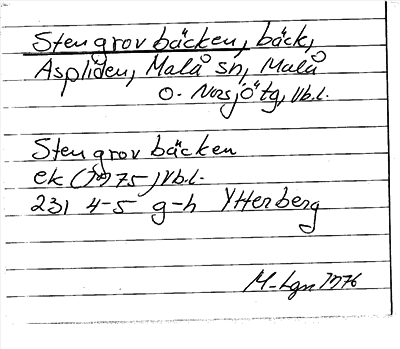 Stengrovbäcken, bäck,
Aspliden, Malå sn, Malå
o. Norsjö tg, Vb.l.
Stengrovbäcken
ek (1975) Vb.l.
231 4-5 g-h Ytterberg
M-Lgn 1976